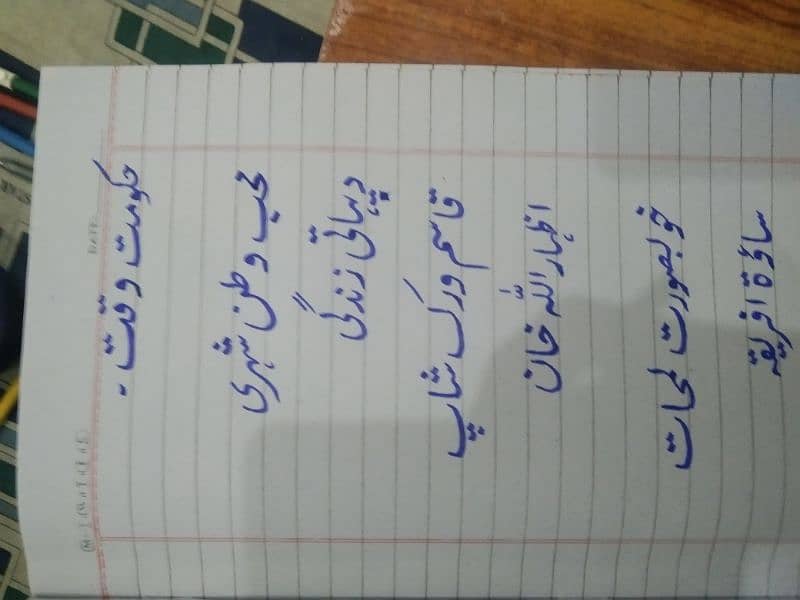 حکومت وقت۔
محب وطن شہری
دیہاتی زندگی
قاسم ورک شاپ
اظہار اللہ خان
خوبصورت لمحات
ساؤتھ افریقہ
DATE: